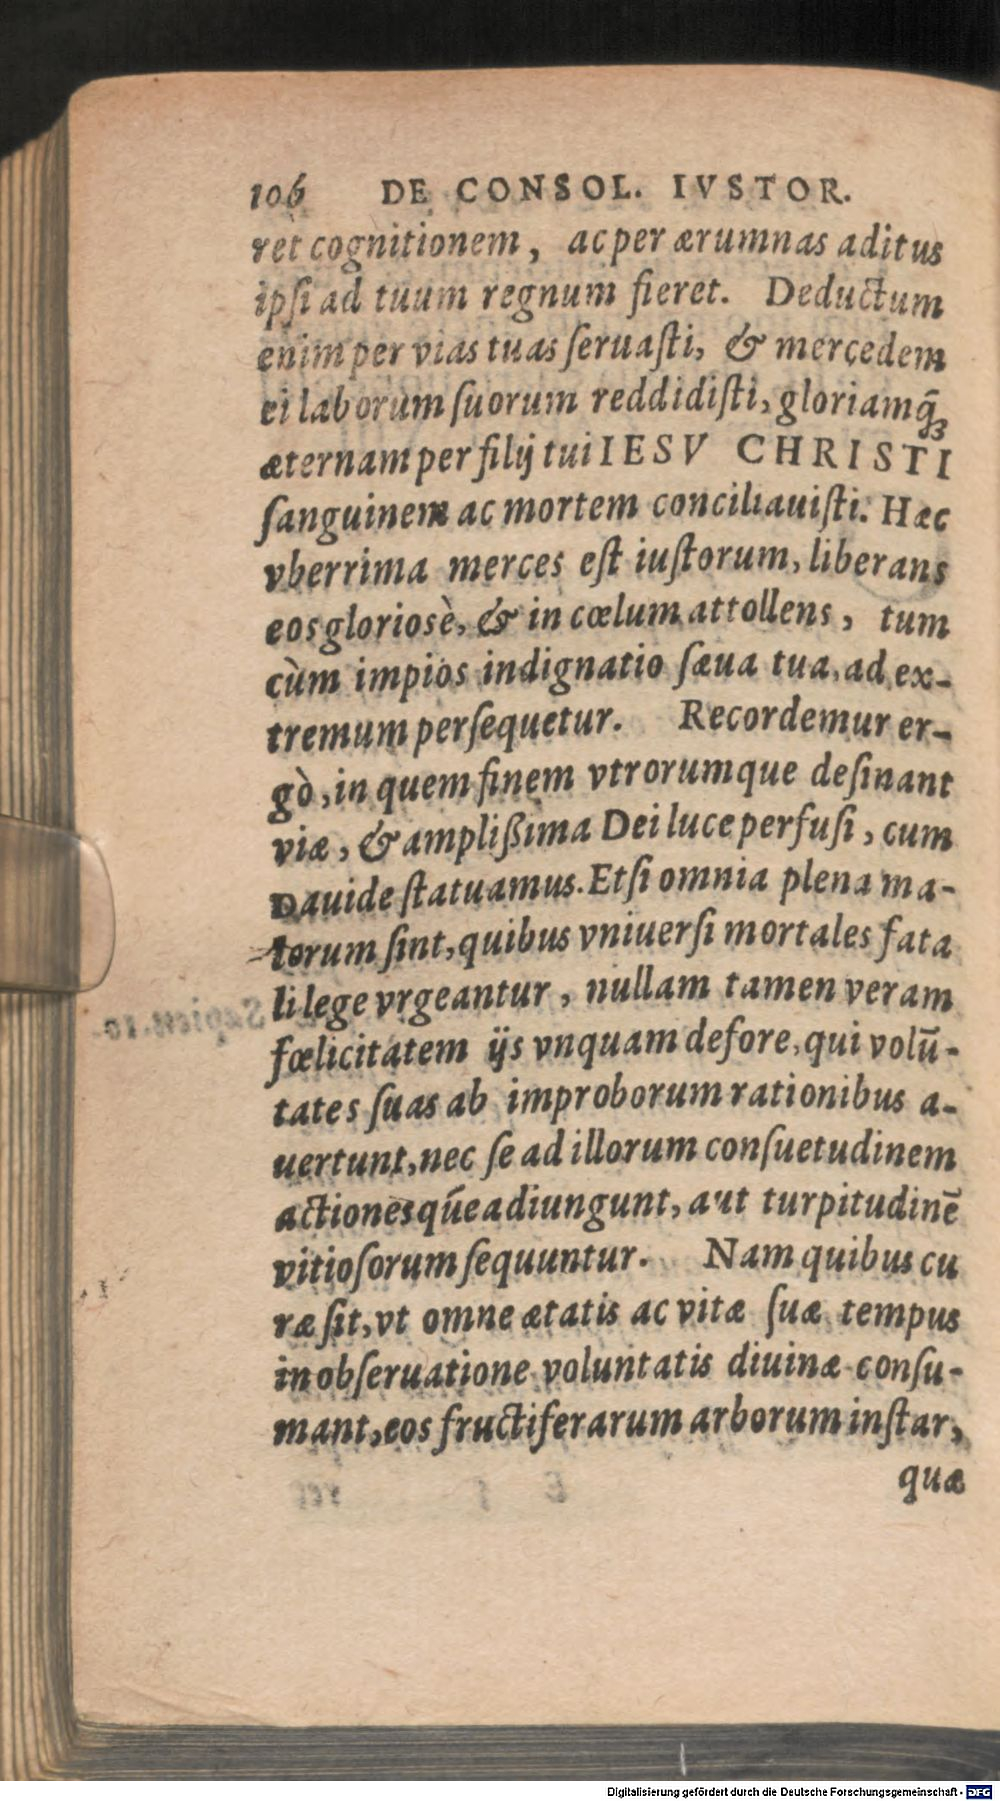 106 DE CONSOL. IVSTOR.
ret cognitionem, ac per ærumnas aditus
ipſi ad tuum regnum fieret. Deductum
enim per vias tuas ſeruaſti, & mercedem
ei laborum ſuorum reddidiſti, gloriamq́ꝫ
æternam per filij tui IESV CHRISTI
ſanguinem ac mortem conciliauiſti. Hæc
vberrima merces eſt iuſtorum, liberans
eos gloriosè, & in cœlum attollens, tum
cùm impios indignatio ſæua tua, ad ex-
tremum perſequetur. Recordemur er-
gò, in quem finem vtrorumque deſinant
viæ, & ampliſsima Dei luce perfuſi, cum
Dauide ſtatuamus. Etſi omnia plena ma-
lorum ſint, quibus vniuerſi mortales fata
li lege vrgeantur, nullam tamen veram
fœlicitatem ijs vnquam defore, qui volū-
tates ſuas ab improborum rationibus a-
uertunt, nec ſe ad illorum conſuetudinem
actionesq́ue adiungunt, aut turpitudinē
vitioſorum ſequuntur. Nam quibus cu
ræ ſit, vt omne ætatis ac vitæ ſuæ tempus
in obſeruatione voluntatis diuinæ conſu-
mant, eos fructiferarum arborum inſtar,
quæ
Digitalisierung gefördert durch die Deutsche Forschungsgemeinschaft - DFG